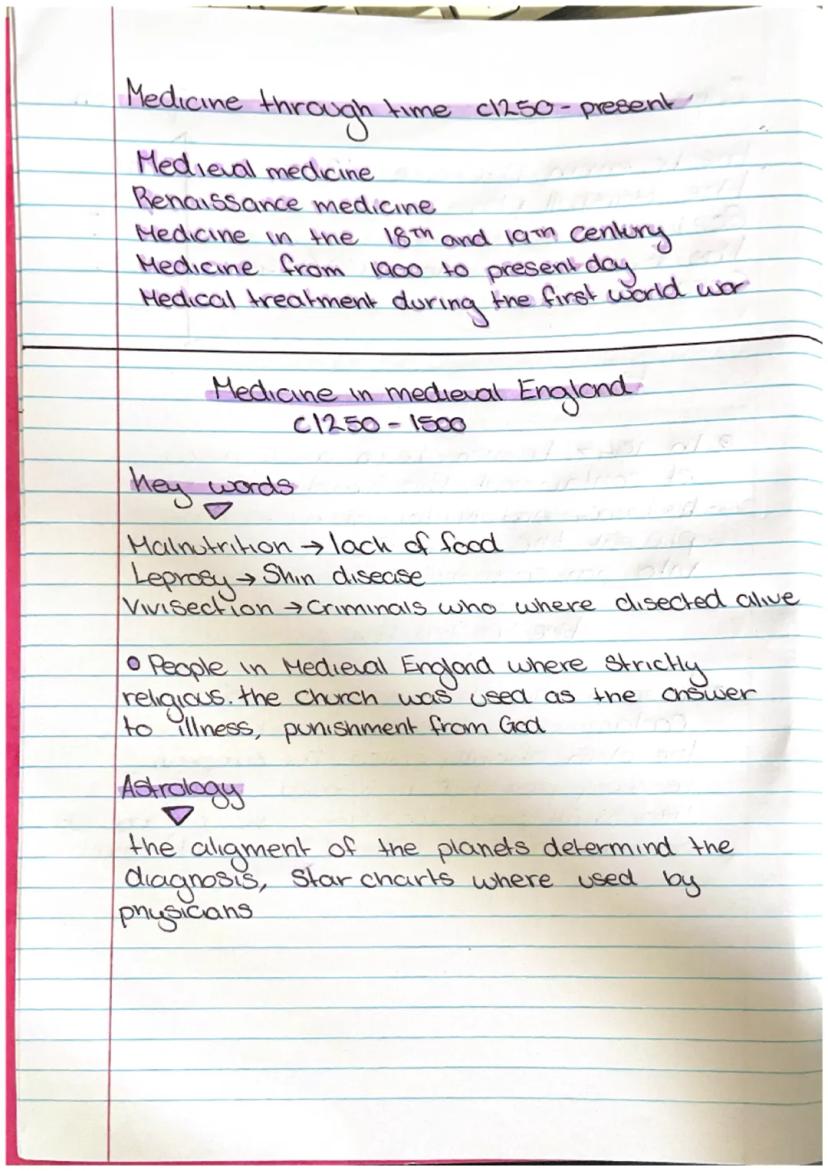 Medicine through time c1250 - present
Medieval medicine
Renaissance medicine
Medicine in the 18th and 19th century
Medicine from 1900 to present day
Medical treatment during the first world war
Medicine in medieval England
c1250 - 1500
Key words
Malnutrition → lack of food
Leprosy → Skin disease
Vivisection → Criminals who where disected alive
• People in Medieval England where strictly
religious. the church was used as the answer
to illness, punishment from God
Astrology
the aligment of the planets determind the
diagnosis, Star charts where used by
physicians